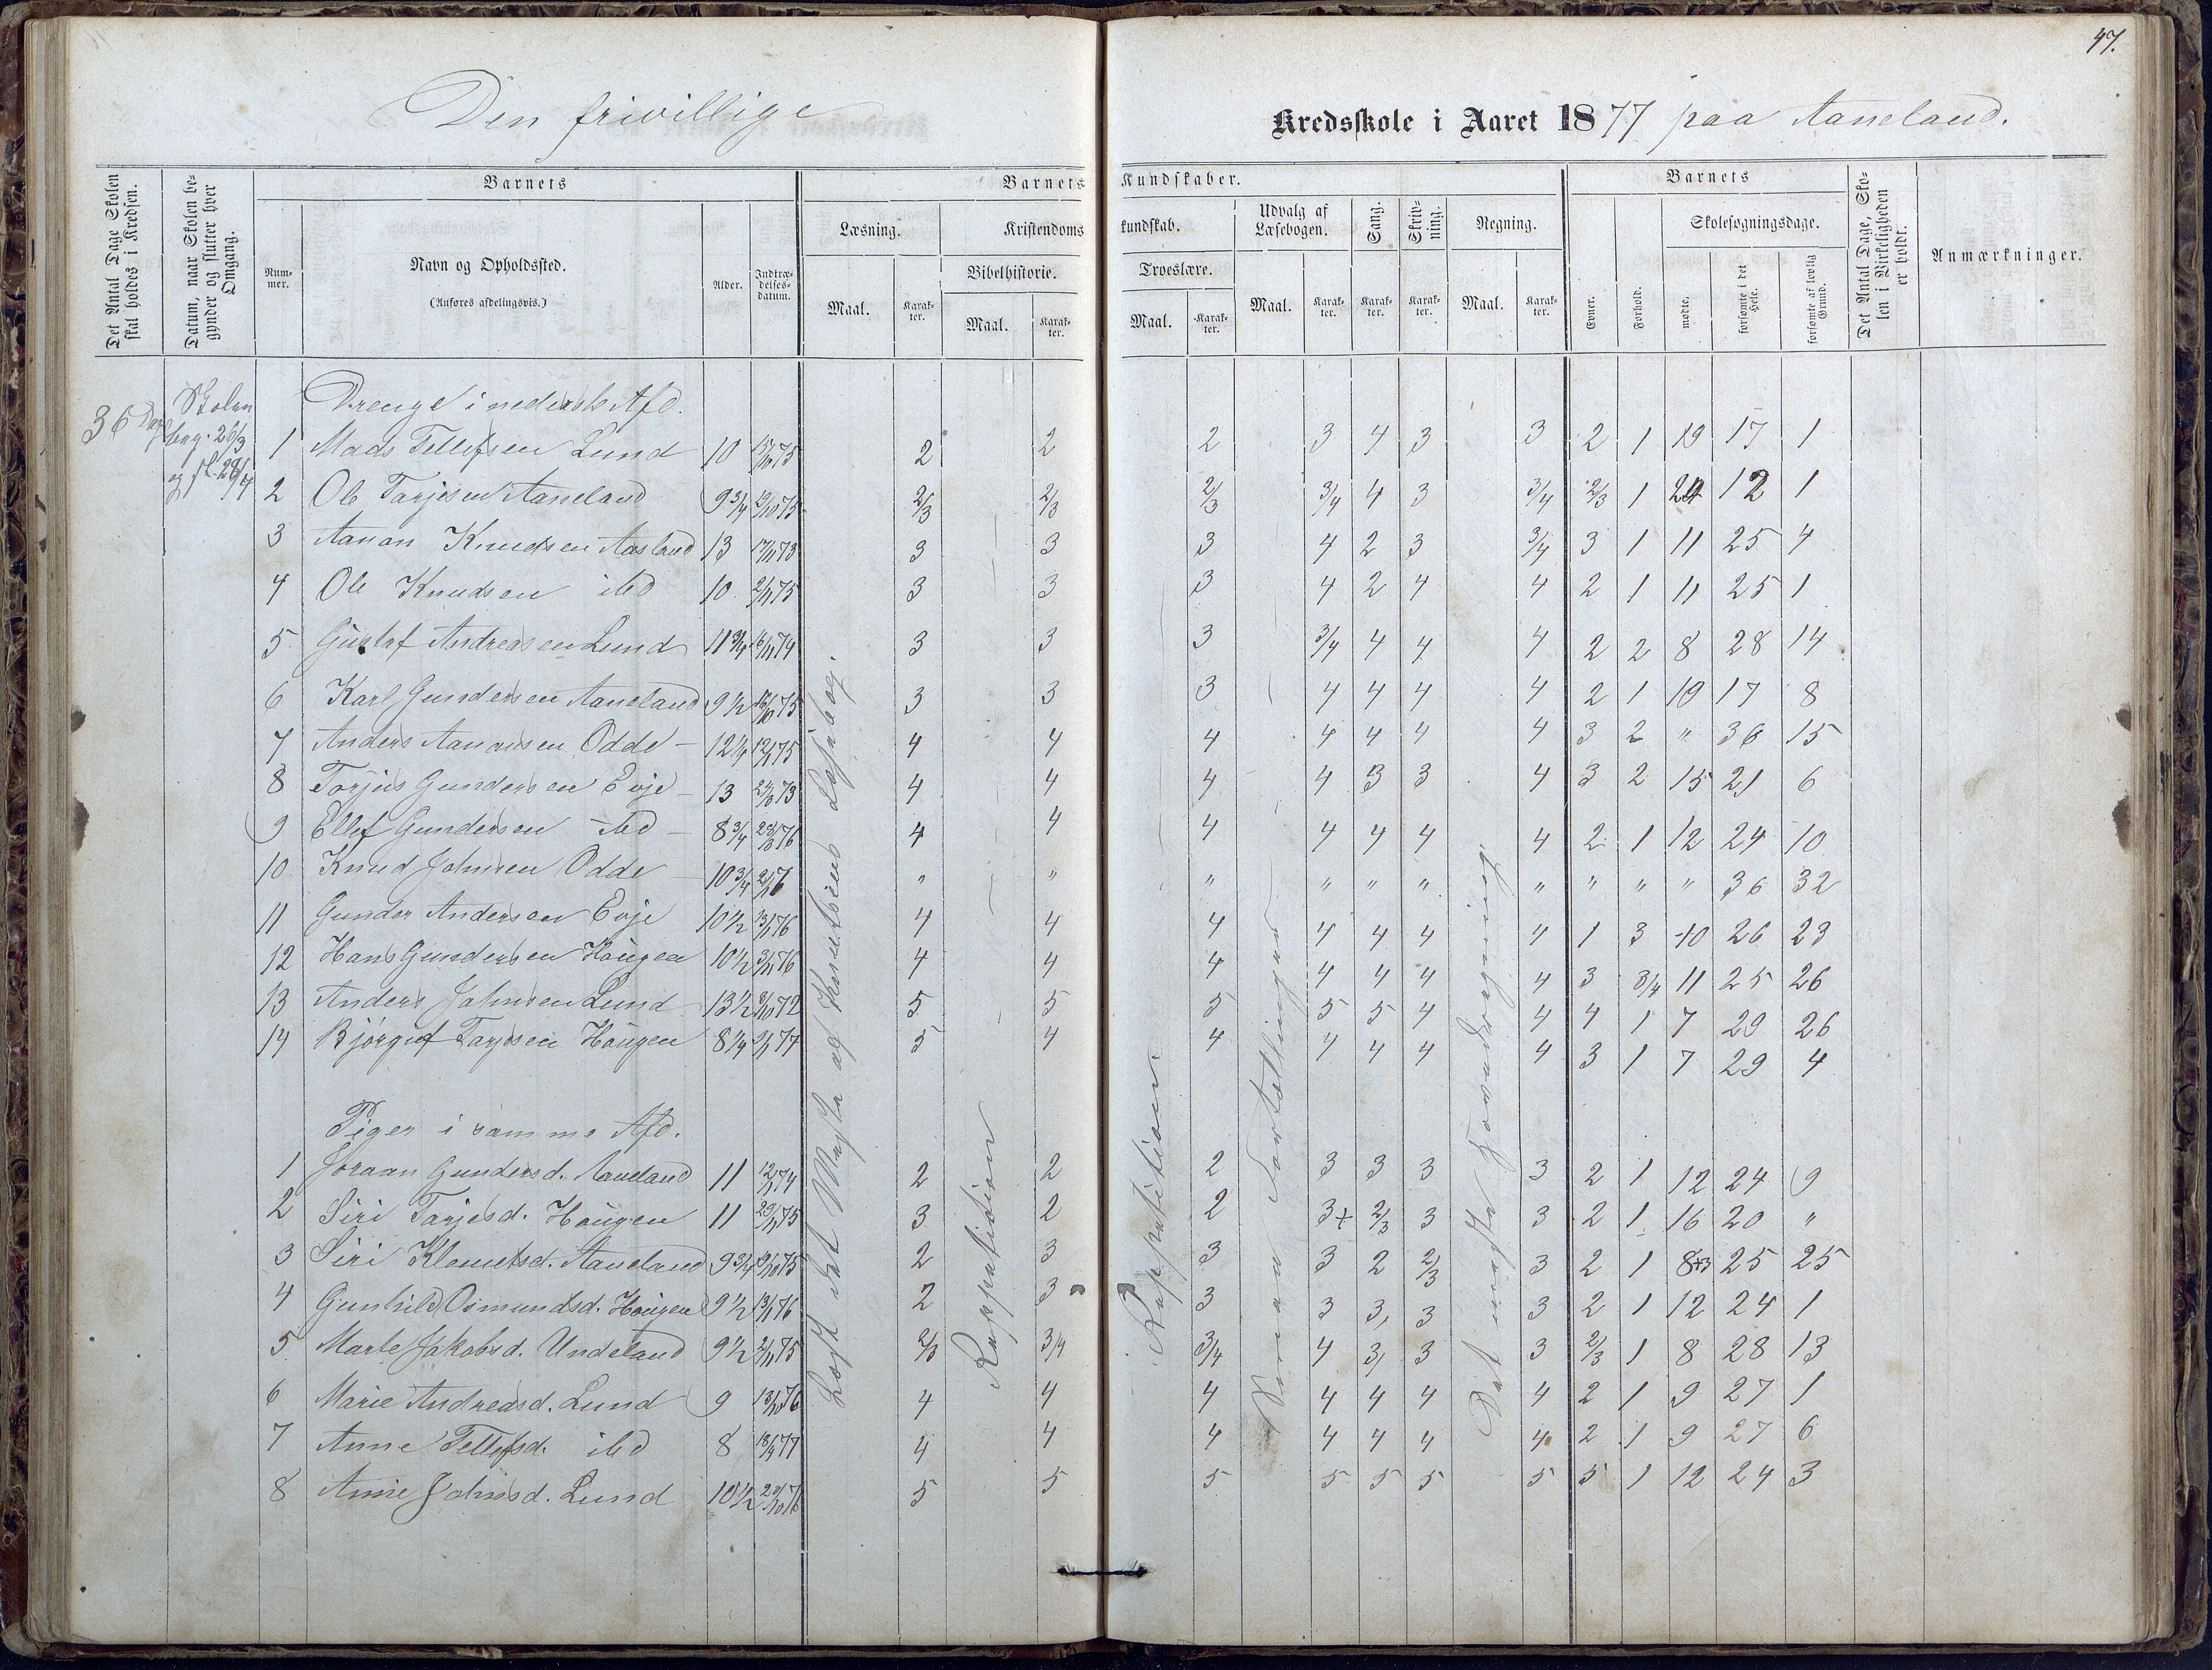 47.
Den frivillige Kredsskole i Aaret 1877 paa Aaneland.
Det Antal Dage Skolen skal holdes i Kredsen.
Datum, naar Skolen begynder og slutter hver Omgang.
Barnets
Nummer.
Navn og Opholdssted.
(Anføres afdelingsvis.)
Alder.
Indtrædelsesdatum.
Barnets Kundskaber.
Læsning.
Maal.
Karakter.
Kristendomskundskab.
Bibelhistorie.
Maal.
Karakter.
Troeslære.
Maal.
Karakter.
Udvalg af Læsebogen.
Maal.
Karakter.
Sang.
Karakter.
Skrivning.
Karakter.
Regning.
Maal.
Karakter.
Barnets
Evner.
Forhold.
Skolesøgningsdage.
mødte.
forsømte i det Hele.
forsømte af lovlig Grund.
Det Antal Dage, Skolen i Virkeligheden er holdt.
Anmærkninger.
36 Dage
Skolen
beg. 26/3
og sl. 28/4
Drenge i nederste Afd.
1 Mads Tellefsen Lund 10 17/10 75 2 2 2 3 4 3 3 2 1 19 17 1
2 Ole Tarjesen Aaneland 9 3/4 75 2/3 2/3 2/3 3/4 4 3 3/4 2/3 1 24 12 1
3 Aanon Knudsen Aasland 13 17/11 73 3 3 3 4 2 3 3/4 3 1 11 25 4
4 Ole Knudsen ibd 10 2/11 75 3 3 3 4 2 4 4 2 1 11 25 1
5 Gustaf Andreasen Lund 11 3/4 16/11 74 3 3 3 3/4 4 4 4 2 2 8 28 14
6 Karl Gundersen Aaneland 9 1/2 75 3 3 3 4 4 4 4 2 1 19 17 8
7 Anders Aanonsen Odde 12 1/4 12/1 75 4 4 4 4 4 4 4 3 2 " 36 15
8 Torjus Gundersen Evje 13 73 4 4 4 4 3 3 4 3 2 15 21 6
9 Ellef Gundersen ibd 8 3/4 76 4 4 4 4 4 4 4 2 1 12 24 10
10 Knud Johnsen Odde 10 3/4 " " " " " " " " " " 36 32
11 Gunder Andersen Evje 10 1/2 13/1 76 4 4 4 4 4 4 4 1 3 10 26 23
12 Hans Gundersen Haugen 10 1/2 76 4 4 4 4 4 4 4 3 3/4 11 25 26
13 Anders Johnsen Lund 13 1/2 8/10 72 5 5 5 5 5 4 4 4 1 7 29 26
14 Bjørguf Tarjesen Haugen 8 1/4 77 5 4 4 4 4 4 4 3 1 7 29 4
Piger i samme Afd.
1 Joraan Gundersd. Aaneland 11 12/11 74 2 2 2 3 3 3 3 2 1 12 24 9
2 Siri Tarjesd. Haugen 11 29/11 75 3 2 2 3+ 2/3 3 3 2 1 16 20 "
3 Siri Klemetsd. Aaneland 9 3/4 19/10 75 2 3 3 3 2 2/3 3 2 1 8+3 25 25
4 Gunhild Osmundsd. Haugen 9 1/2 13/1 76 2 3 3 3 3 3 3 2 1 12 24 1
5 Marte Jakobsd. Undeland 9 1/2 2/11 75 2/3 3/4 3/4 4 3 3 3 2/3 1 8 28 13
6 Marie Andreasd. Lund 9 13/10 76 4 4 4 4 4 4 4 2 1 9 27 1
7 Anne Tellefsd. ibd 8 18/4 77 4 4 4 4 4 4 4 2 1 9 27 6
8 Anne Johnsd. Lund 10 1/2 76 5 5 5 5 5 5 5 5 1 12 24 3
Læst det Meste af Knutsens Læsebog.
Reppetition
Reppetition
Fortællinger
Det meste Hovedregning.